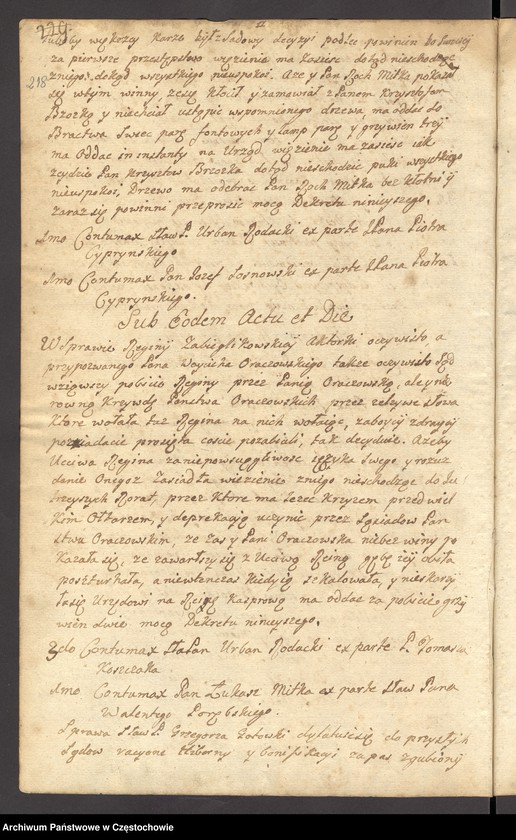 229.
218
by większey karze był Sadowy decyzyi podlec powinien
za pierwsze przestępstwo więzienie ma zasiesc dotąd nieschodząc
zniego, dokąd wszystkiego nieuspokoi. Aże y Pan Roch Mitka pokazał
się wtym winny, zesię kłocił y zamawiał z Panem Krzysztofem
Brzozką y niechciał ustąpic wspomnionego drzewa, ma oddac do
Bractwa Swiec parę fontowych y lamp parę y grzywien trzy
ma Oddac in instanti na Urząd, więzienie ma zasiesc iak
zeydzie Pan Krzysztow Brzozka dotąd nieschodzic puki wszystkiego
nieuspokoi, Drzewo ma odebrac Pan Roch Mitka bez kłotni y
zaraz się powinni przeprosic mocą Dekretu ninieyszego.
1mo Contumax Sław P. Urban Rodacki ex parte JPana Piotra
Cyprynskiego
1mo Contumax Pan Jozef Losnowski ex parte JPana Piotra
Cyprynskiego.
Sub Eodem Actu et Die
W Sprawie Reginÿ Zabieglikowskiey Aktorki oczywisto, a
przypozwanego Pana Woycicha Oraczowskiego także oczywisto Sąd
wziąwszy pobicie Reginy przez Panią Oraczowską, ale y nie
rowną Krzywdę Panstwa Oraczowskich przez zelzywe słowa
Ktore wołała taż Regina na nich wołaiąc, zaboycy zdraycy
poziadacie prosięta coscie pozabiali, tak decyduie. Azeby
Uczciwa Regina za niepowsciągliwosc ięzyka swego y rozsz
danie Onegoż Zasiadła więzienie zniego nieschodząc do Ju
trzyszych Rorat, przez Ktore ma lezec Krzyzem przed wiel
kim Ołtarzem, y deprekacyą uczynic przez Sąsiadow Pan
stwu Oraczowskim, że zas y Pani Oraczowska niebez winy po
kazała się, ze zawarłszy się z Uczciwą Reiną gębę iey obiła
poszturchała, a niewtenczas kiedy ią szkalowała, y nieskarzy
ła się Urzędowi na Reinę Kasprową ma oddac za pobicie grzy
wien dwie mocą Dekretu ninieyszego.
3do Contumax Sła Pan Urban Rodacki ex parte P. Tomasza
Koszczaka
1mo Contumax Pan Łukasz Mitka ex parte Sław Pana
Walentego Porębskiego.
Sprawa Sław P. Grzegorza Łotowski dylatuie się do przyszłych
Sądow racyone y bonifikacyi za pas zgubiony
Archiwum Państwowe w Częstochowie